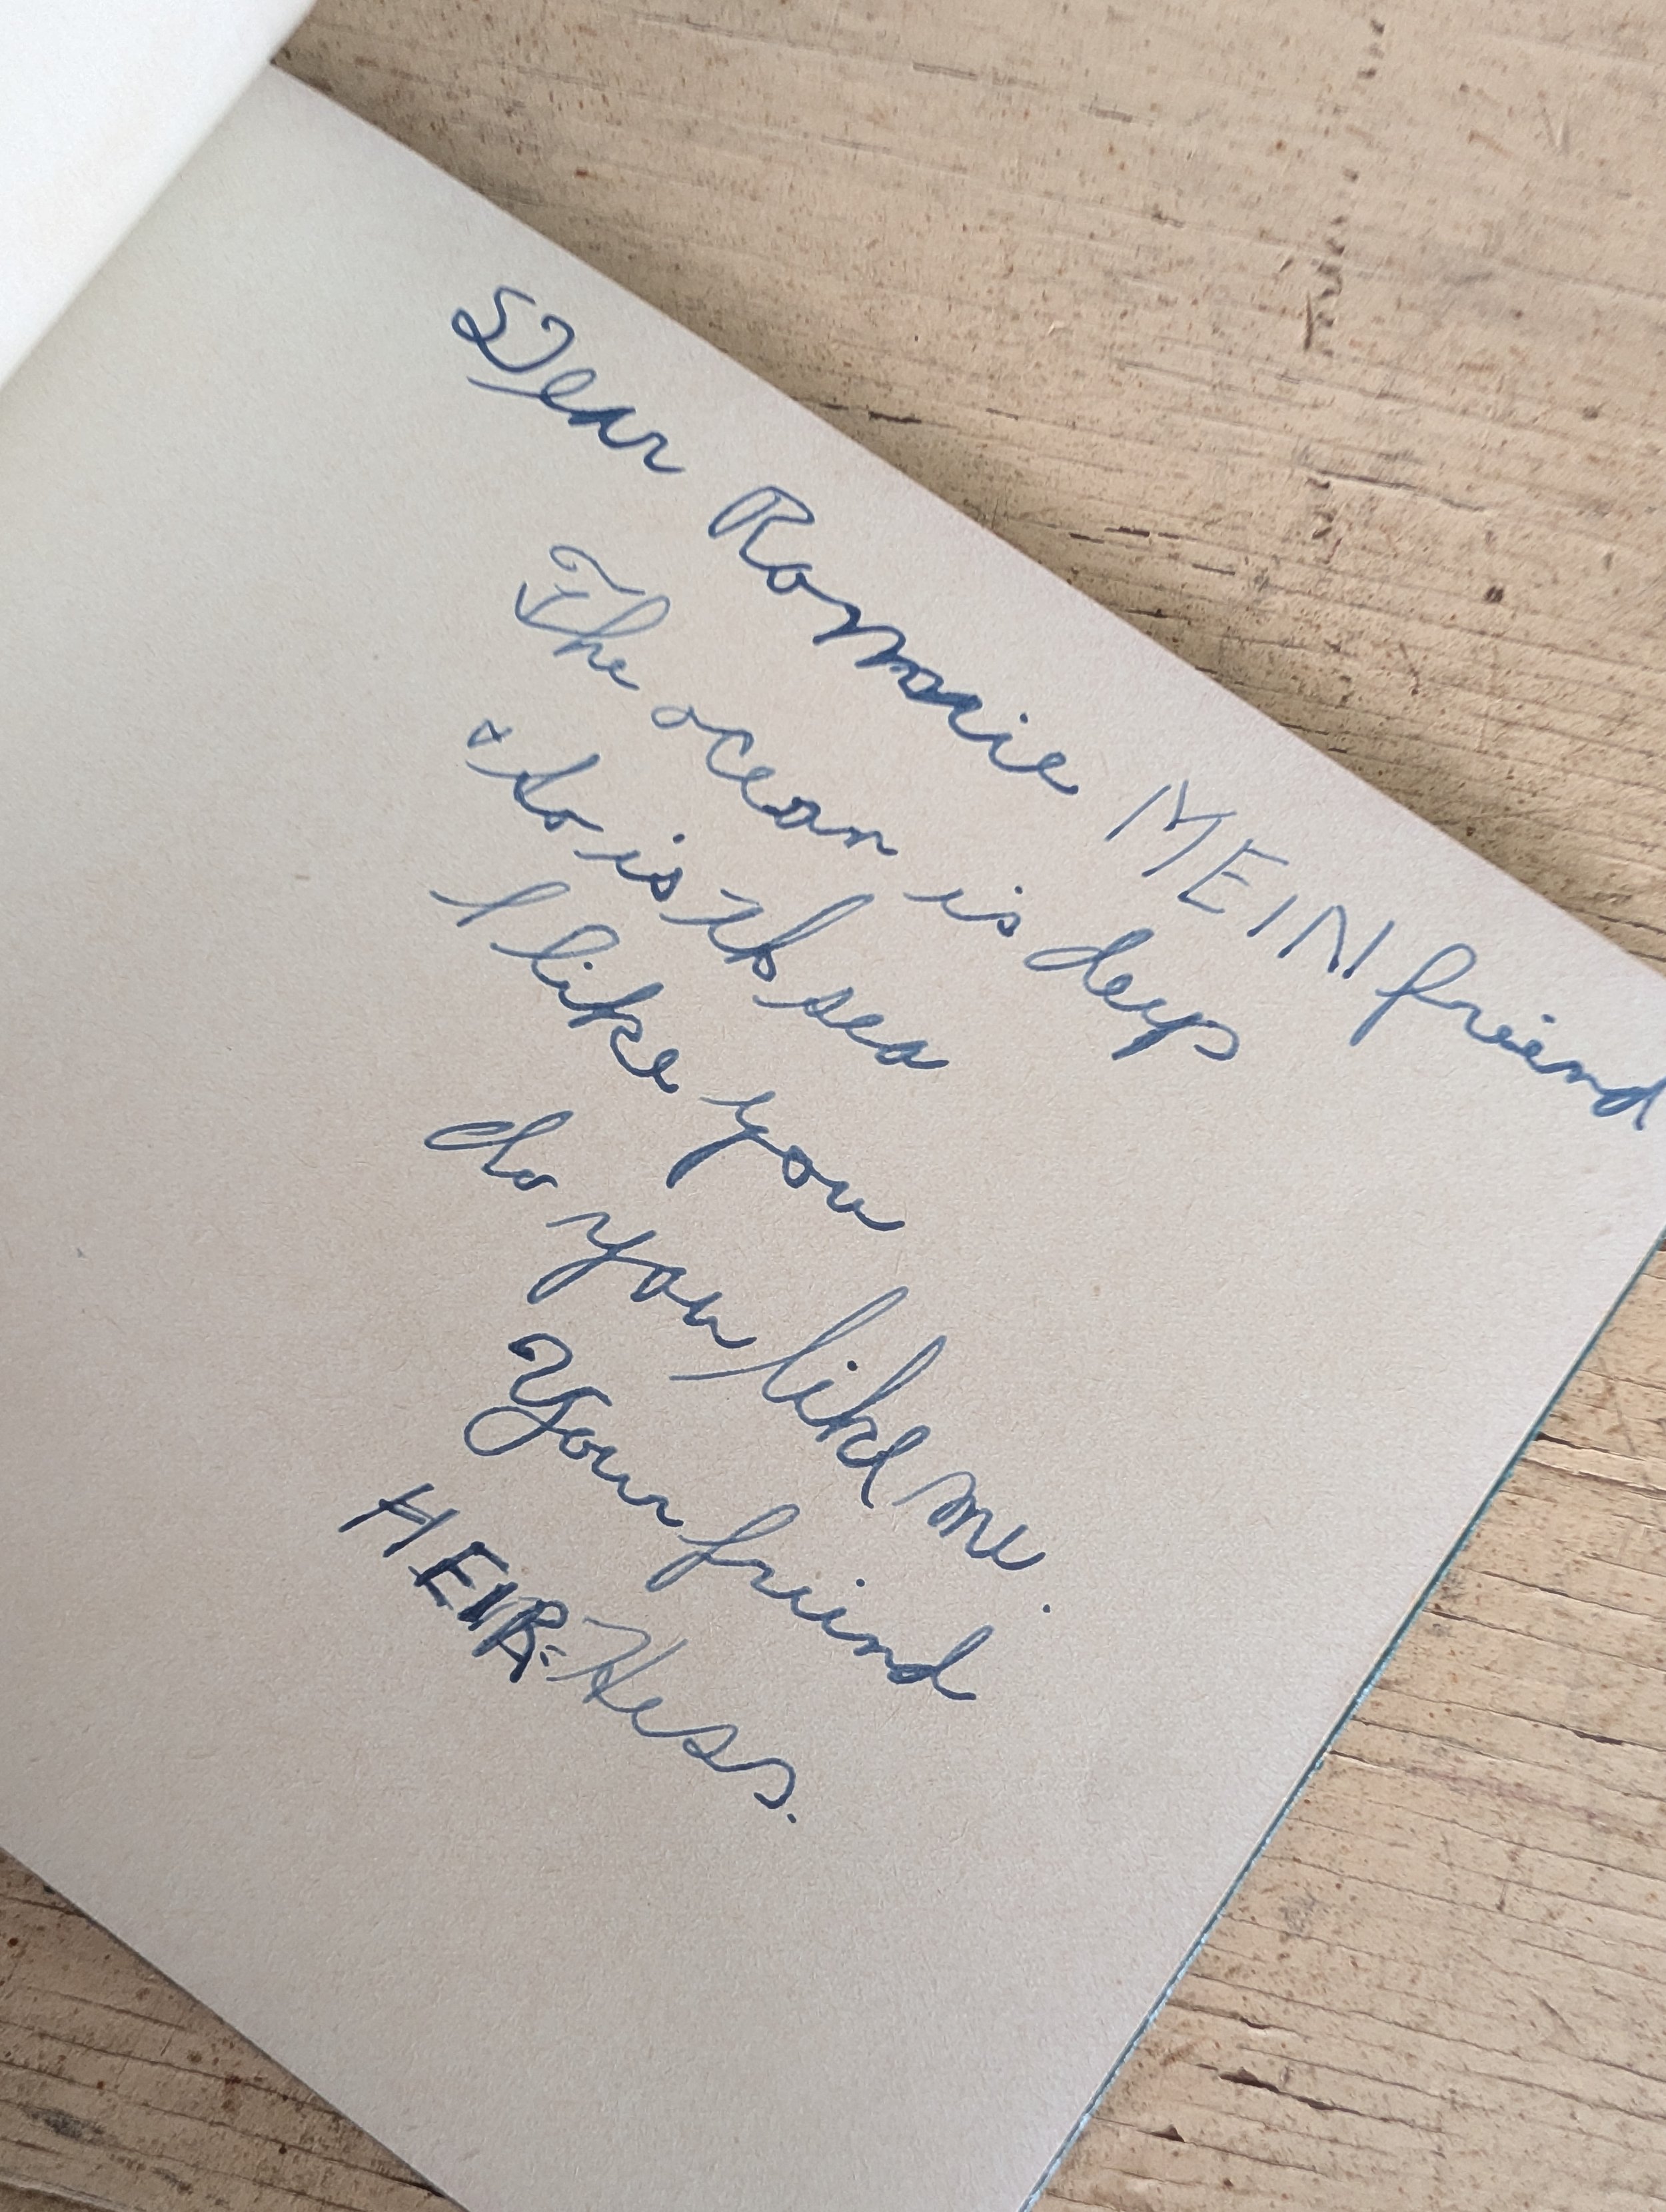 Dear Rommie MEIN friend
The ocean is deep
& so is the sea
I like you
do you like me.
Your friend
HEIR: Hess.